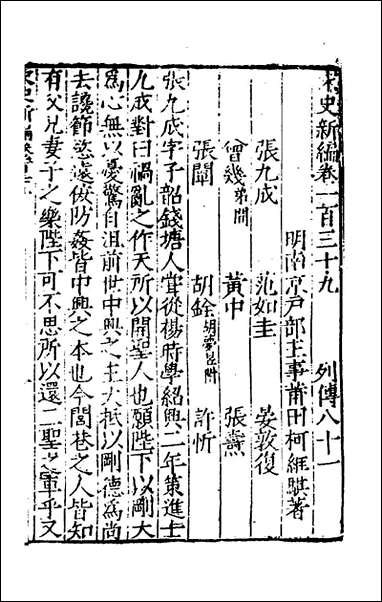 宋史新編卷一百三十九　　列傳八十一
明南京戶部主事莆田柯維騏著
張九成　范如圭　晏敦復
曾幾弟開　黃中　張燾
張闡　胡銓胡夢昱附　許忻
張九成字子韶錢塘人嘗從楊時學紹興二年策進士
九成對曰禍亂之作天所以開聖人也願陛下以剛大
爲心無以憂驚自沮前世中興之主大抵以剛德爲尚
去讒節慾遠佞防姦皆中興之本也今閭巷之人皆知
有父兄妻子之樂陛下可不思所以還二聖之軍乎又